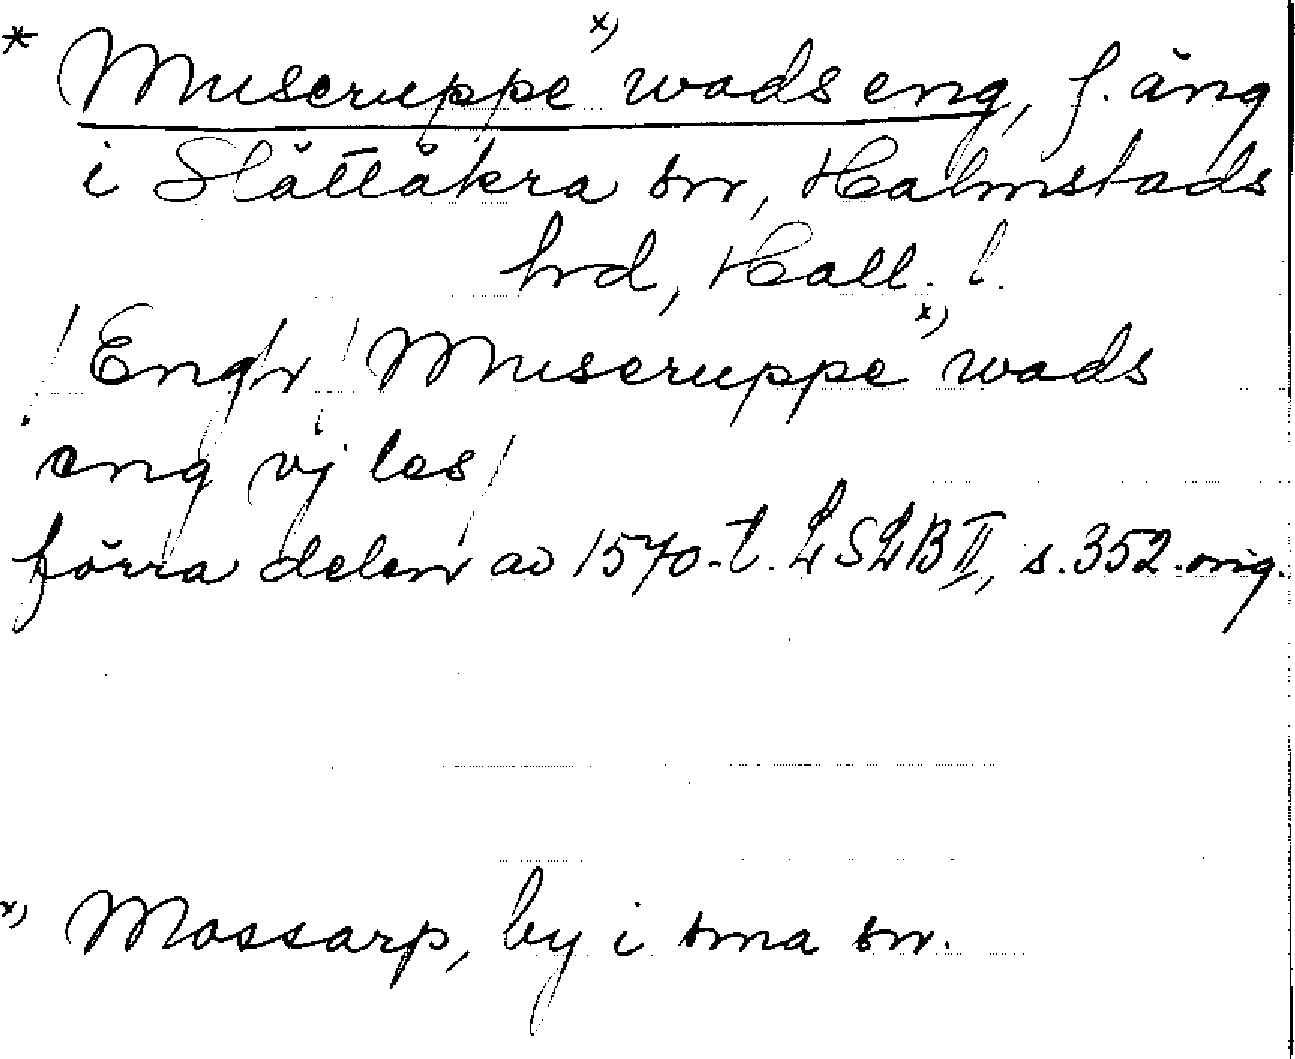 * Museruppe x) wads eng, f. äng
i Slättåkra sn, Halmstads
hd, Hall. l.
/Engh/ Museruppe x) wads
eng vj las/
förra delen av 1570-t. LSLB II, s. 352. orig.
x) Mossarp, by i sma sn.